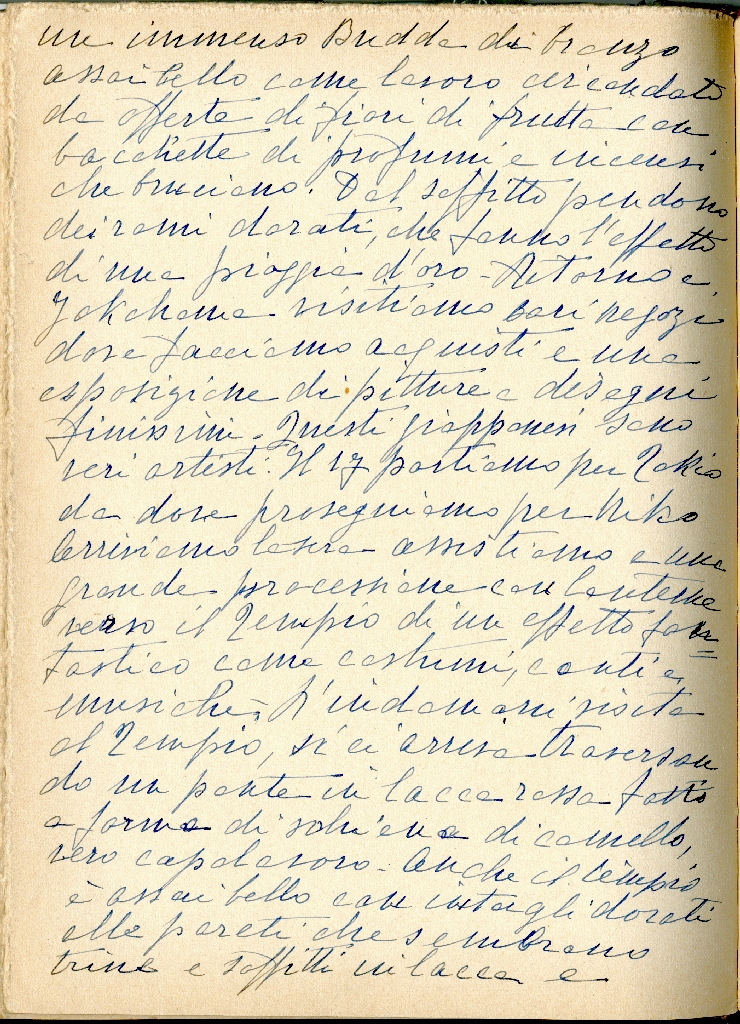 un immenso Budda di bronzo
assai bello come lavoro circondato
da offerte di fiori di frutta con
bacchette di profumi e incensi
che bruciano. Dal soffitto pendono
dei rami dorati, che fanno l'effetto
di una pioggia d'oro - Ritorno a
Yokohama visitiamo vari negozi
dove facciamo acquisti e una
esposizione di pitture e disegni
finissimi. Questi giapponesi sono
veri artisti. Il 17 partiamo per Tokio
da dove proseguiamo per Niko
Arriviamo la sera assistiamo a una
grande processione con lanterne
verso il Tempio di un effetto fan=
tastico come costumi, canti e
musiche. L'indomani visita
al Tempio, si ci arriva traversan
do un ponte in lacca rossa fatto
a forma di schiena di camello,
vero capolavoro - Anche il tempio
è assai bello con intagli dorati
alle pareti che sembrano
trine e soffitti in lacca e